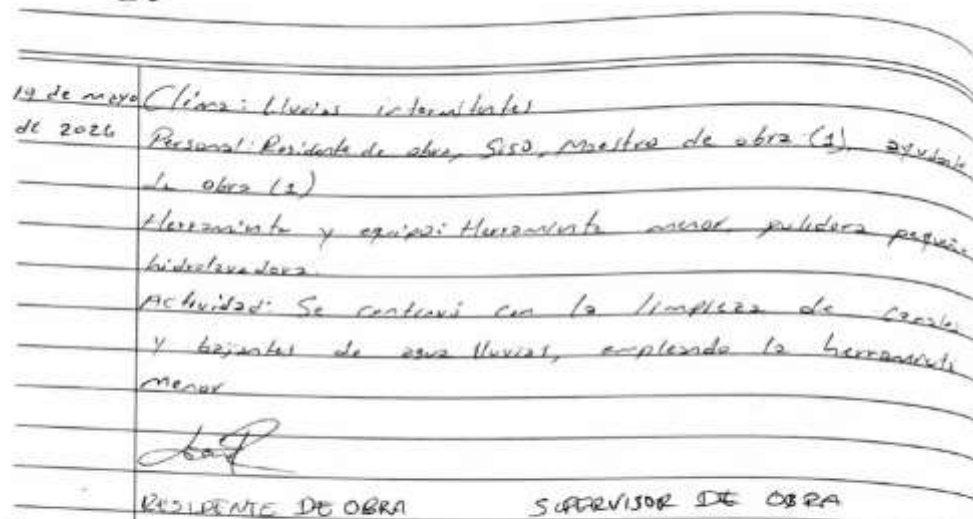 19 de mayo de 2026
Clima: Lluvias intermitentes
Personal: Residente de obra, SISO, Maestro de obra (1), ayudante
de obra (1)
Herramienta y equipo: Herramienta menor, pulidora pequeña
hidrolavadora.
Actividad: Se continuó con la limpieza de canales
y bajantes de agua lluvias, empleando la herramienta
menor
RESIDENTE DE OBRA SUPERVISOR DE OBRA